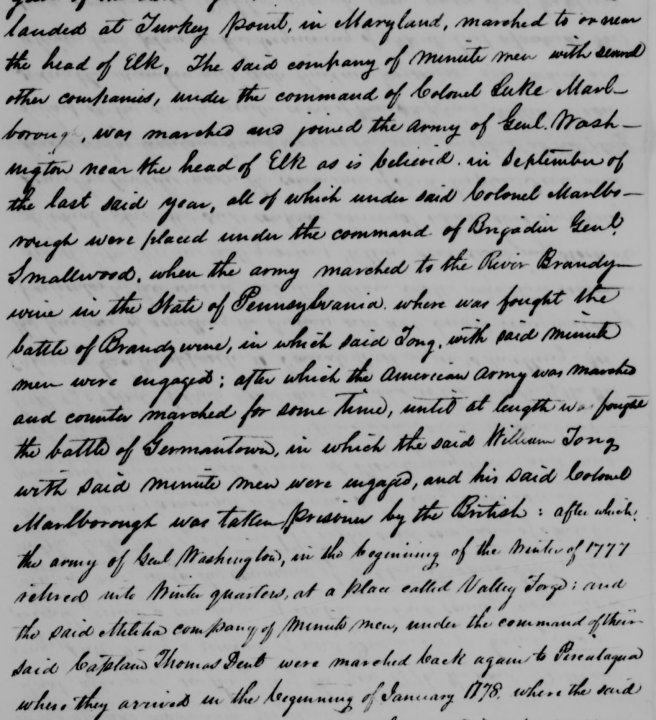 landed at Turkey Point, in Maryland, marched to or near
the head of Elk. The said company of minute men with several
other companies, under the command of Colonel Luke Marl-
borough, was marched and joined the army of Genl. Wash-
ington near the head of Elk as is believed in September of
the last said year, all of which under said Colonel Marlbo-
rough were placed under the command of Brigadier Genl.
Smallwood. when the army marched to the River Brandy-
wine in the State of Pennsylvania. where was fought the
battle of Brandywine, in which said Tong, with said minute
men were engaged; after which the American Army was marched
and counter marched for some time, until at length was fought
the battle of Germantown, in which the said William Tong
with said minute men were engaged, and his said Colonel
Marlborough was taken prisoner by the British: after which
the army of Genl Washington, in the beginning of the Winter of 1777
retired into Winter quarters, at a place called Valley Forge: and
the said Militia company of minute men, under the command of their
said Captain Thomas Dent were marched back again to Piscataqua
where they arrived in the beginning of January 1778. where the said